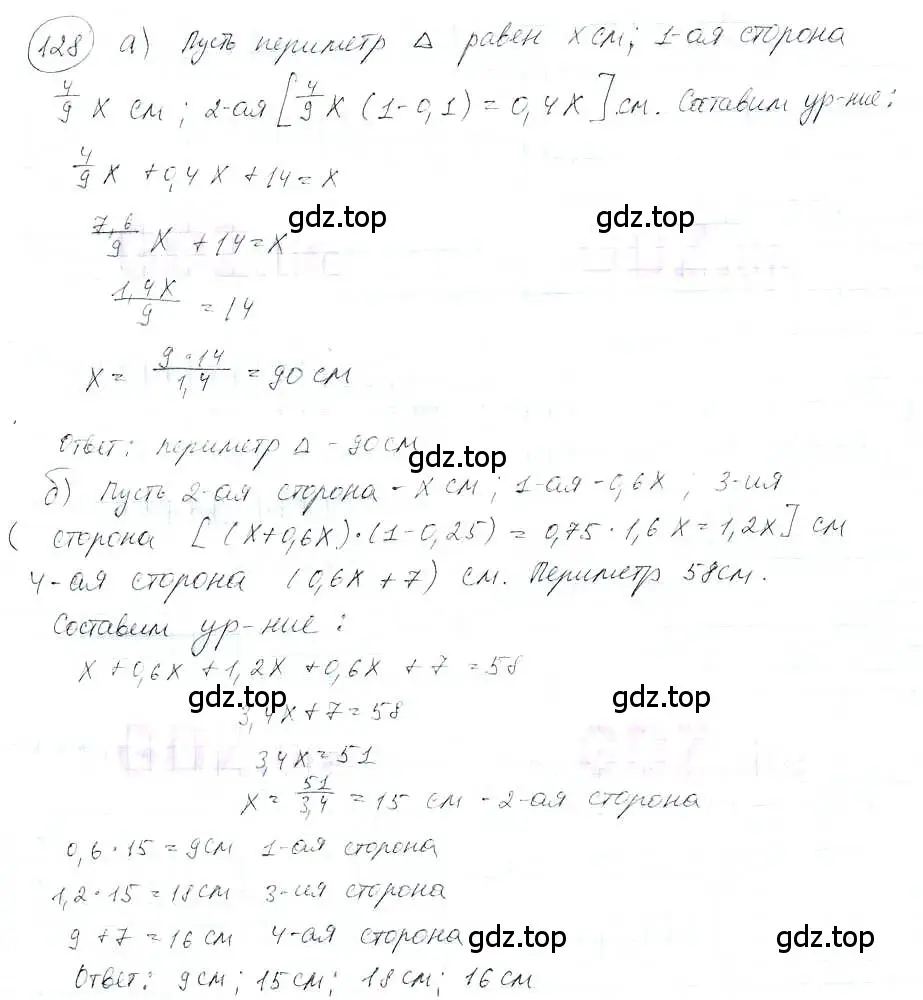 128 а) Пусть периметр Δ равен x см; 1-ая сторона
4/9 x см; 2-ая [4/9 x (1-0,1) = 0,4x] см. Составим ур-ние:
4/9 x + 0,4x + 14 = x
gdz.top gdz.top
7,6/9 x + 14 = x
1,4x/9 = 14
x = 9·14/1,4 = 90 см
Ответ: периметр Δ - 90 см
gdz.top gdz.top
б) Пусть 2-ая сторона - x см; 1-ая - 0,6x; 3-ия
( сторона [(x+0,6x)·(1-0,25) = 0,75·1,6x = 1,2x] см
4-ая сторона (0,6x + 7) см. Периметр 58см.
Составим ур-ние:
x + 0,6x + 1,2x + 0,6x + 7 = 58
gdz.top gdz.top
3,4x + 7 = 58
3,4x = 51
x = 51/3,4 = 15 см - 2-ая сторона
0,6·15 = 9см 1-ая сторона
1,2·15 = 18см 3-ия сторона
9 + 7 = 16 см 4-ая сторона
gdz.top gdz.top
Ответ: 9см; 15см; 18см; 16см